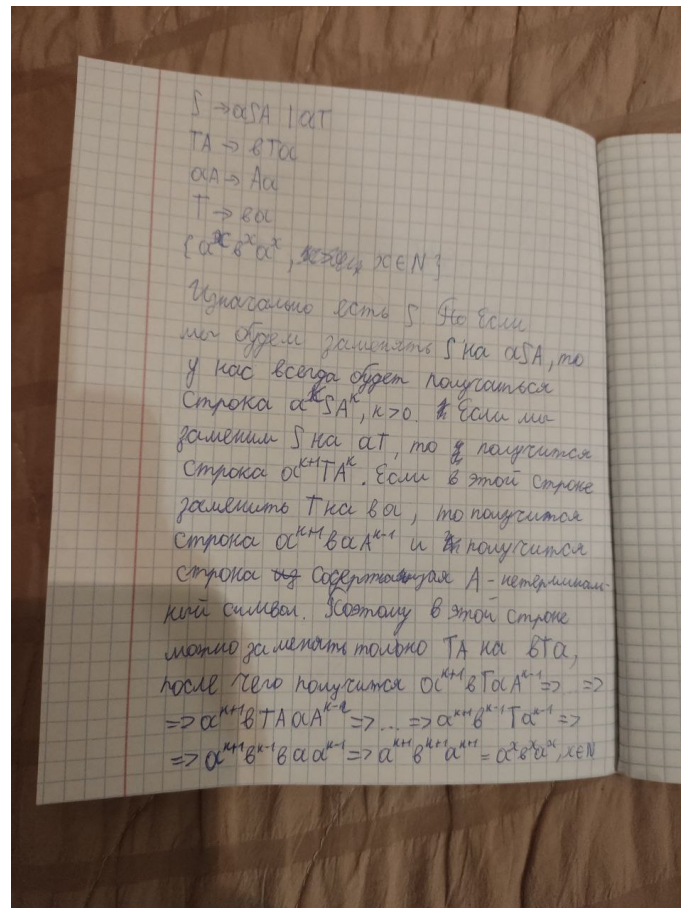 S → aSA | aT
TA → вTa
aA → Aa
T → вa
{aˣвˣaˣ, x ∈ N}
Изначально есть S. Но если
мы будем заменять S на aSA, то
у нас всегда будет получаться
строка aᵏSAᵏ, к>0. Если мы
заменим S на aT, то получится
строка aᵏ⁺¹TAᵏ. Если в этой строке
заменить T на вa, то получится
строка aᵏ⁺¹вaAᵏ⁻¹ и получится
строка содержащая A - нетерминаль-
ный символ. Поэтому в этой строке
можно заменять только TA на вTa,
после чего получится aᵏ⁺¹вTaAᵏ⁻¹ => ... =>
=> aᵏ⁺¹вTAaAᵏ⁻² => ... => aᵏ⁺¹вᵏ⁻¹Taᵏ⁻¹ =>
=> aᵏ⁺¹вᵏ⁻¹вaaᵏ⁻¹ => aᵏ⁺¹вᵏ⁺¹aᵏ⁺¹ = aˣвˣaˣ, x∈N